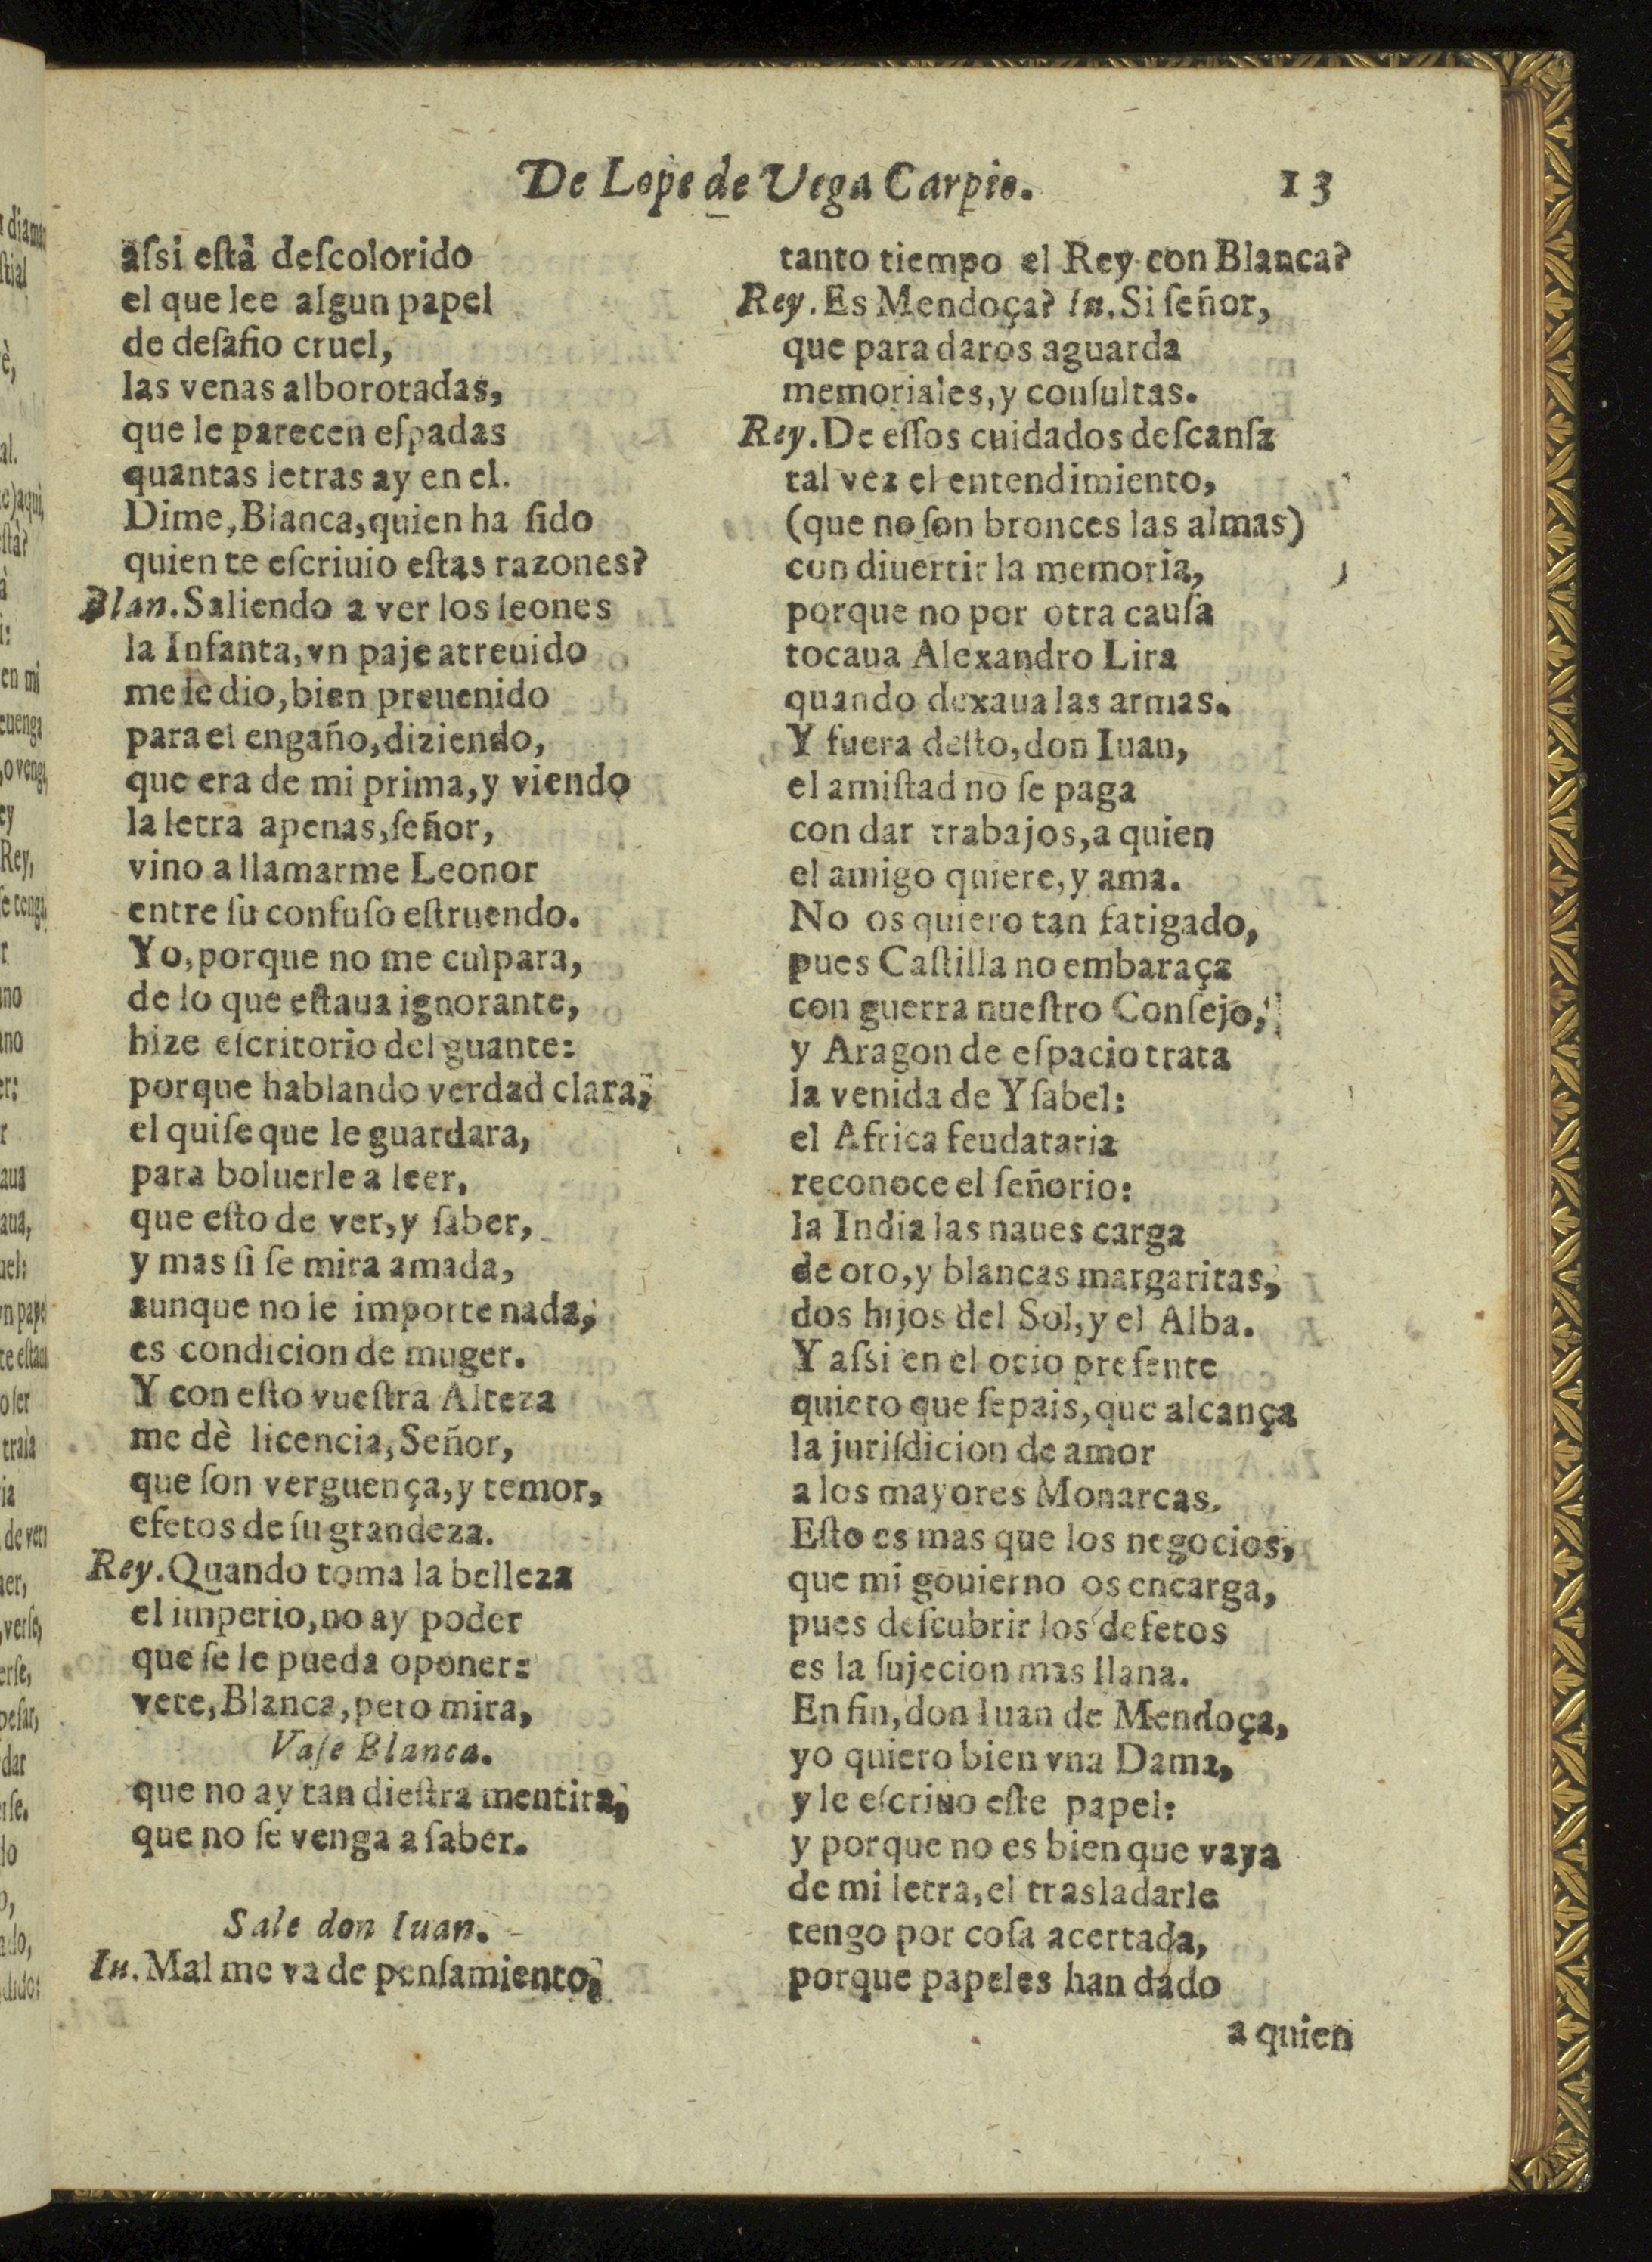 De Lope de Vega Carpio. 13
aſsi eſtà deſcolorido
el que lee algun papel
de deſafio cruel,
las venas alborotadas,
que le parecen eſpadas
quantas letras ay en el.
Dime, Blanca, quien ha ſido
quien te eſcriuio eſtas razones?
Blan. Saliendo a ver los leones
la Infanta, vn paje atreuido
me le dio, bien preuenido
para el engaño, diziendo,
que era de mi prima, y viendo
la letra apenas, ſeñor,
vino a llamarme Leonor
entre ſu confuſo eſtruendo.
Yo, porque no me culpara,
de lo que eſtaua ignorante,
hize eſcritorio del guante:
porque hablando verdad clara,
el quiſe que le guardara,
para boluerle a leer,
que eſto de ver, y ſaber,
y mas ſi ſe mira amada,
aunque no le importe nada,
es condicion de muger.
Y con eſto vueſtra Alteza
me dè licencia, Señor,
que ſon verguença, y temor,
efetos de ſu grandeza.
Rey. Quando toma la belleza
el imperio, no ay poder
que ſe le pueda oponer:
vete, Blanca, pero mira,
Vaſe Blanca.
que no ay tan dieſtra mentira,
que no ſe venga a ſaber.
Sale don Iuan.
Iu. Mal me va de penſamiento,
tanto tiempo el Rey con Blanca?
Rey. Es Mendoça? Iu. Si ſeñor,
que para daros aguarda
memoriales, y conſultas.
Rey. De eſſos cuidados deſcanſa
tal vez el entendimiento,
(que no ſon bronces las almas)
con diuertir la memoria,
porque no por otra cauſa
tocaua Alexandro Lira
quando dexaua las armas.
Y fuera deſto, don Iuan,
el amiſtad no ſe paga
con dar trabajos, a quien
el amigo quiere, y ama.
No os quiero tan fatigado,
pues Caſtilla no embaraça
con guerra nueſtro Conſejo,
y Aragon de eſpacio trata
la venida de Yſabel:
el Africa feudataria
reconoce el ſeñorio:
la India las naues carga
de oro, y blancas margaritas,
dos hijos del Sol, y el Alba.
Y aſsi en el ocio preſente
quiero que ſepais, que alcança
la juriſdicion de amor
a los mayores Monarcas.
Eſto es mas que los negocios,
que mi gouierno os encarga,
pues deſcubrir los defetos
es la ſujecion mas llana.
En fin, don Iuan de Mendoça,
yo quiero bien vna Dama,
y le eſcriuo eſte papel:
y porque no es bien que vaya
de mi letra, el trasladarle
tengo por coſa acertada,
porque papeles han dado
a quien